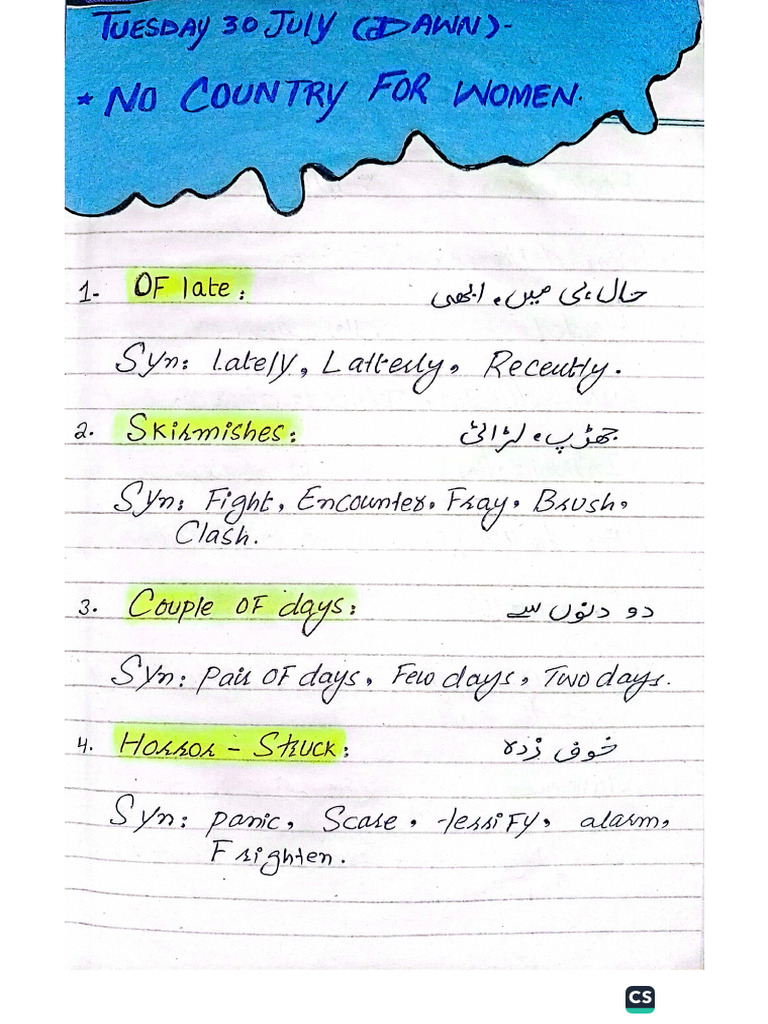 TUESDAY 30 JULY (DAWN)-
* NO COUNTRY FOR WOMEN.
1- OF late: حال ہی میں، ابھی
Syn: Lately, Latterly, Recently.
2. Skirmishes: جھڑپ، لڑائی
Syn: Fight, Encounter, Fray, Brush,
Clash.
3. Couple OF days: دو دنوں سے
Syn: Pair OF days, Few days, Two days.
4. Horror - Struck: خوف زدہ
Syn: Panic, Scare, terrify, alarm,
Frighten.
CS